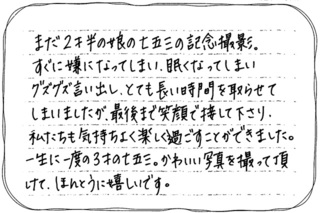 まだ2才半の娘の七五三の記念撮影。
すぐに嫌になってしまい、眠くなってしまい
グズグズ言い出し、とても長い時間を取らせて
しまいましたが、最後まで笑顔で接して下さり、
私たちも気持ちよく楽しく過ごすことができました。
一生に一度の3才の七五三。かわいい写真を撮って頂
けて、ほんとうに嬉しいです。